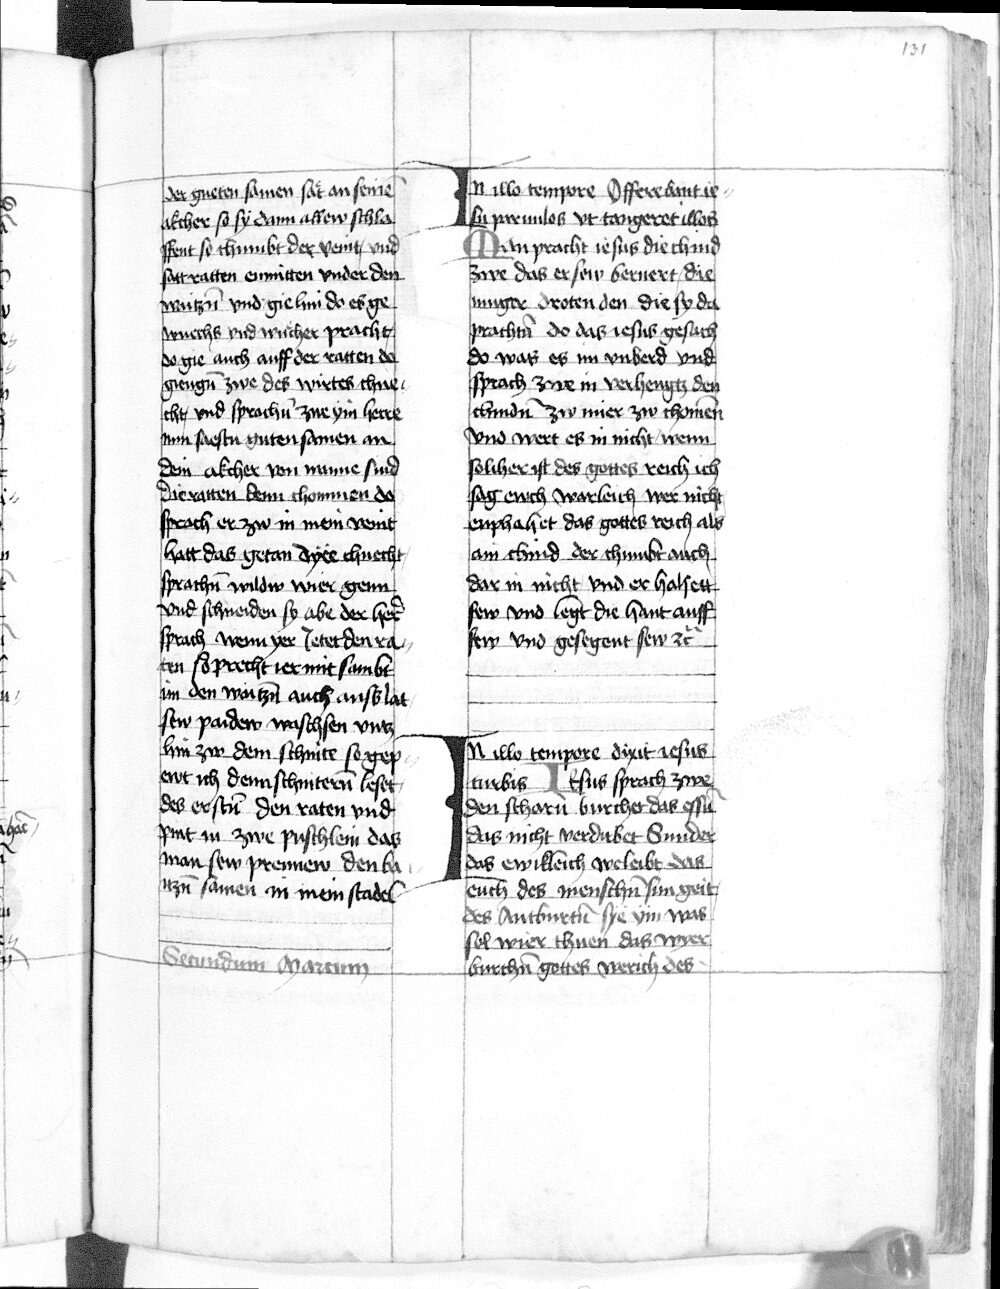 131
der gueten samen sat an seinē
akcher so sy dann allew schla
ffent so chumbt der veint vnd
sätt ratten enmitten vnder den
waitzn̄ vnd gie hin do es ge
wuechs vnd wucher pracht
do gie auch auff der ratten do
giengn̄ zwe des wirtes chne
cht vnd sprachn̄ zwe ym herre
nun saestu guten samen an
dein akcher von wanne sind
die ratten denn chommen do
sprach er zw in mein veint
hatt das getan dyee chnecht
sprachn̄ wildw wier genn
vnd schneiden sy abe der her̄
sprach wenn yer Jetet den ra
ten so precht ier mit sambt
im den waitzn̄ auch auss lat
sew paidew waschsen vntz
hin zw dem schnite so gep
ewt ich denn schnitern̄ leset
des erstn̄ den raten vnd
pint in zwe puschlein das
man sew prennew den wa
itzn̄ samen in mein stadel
Secundum Marcum
In illo tempore Offerebant ie
su pruulos vt tangeret illos
Man pracht iesus die chind
zwe das er sew beruert die
iunger droten den die sy da
prachtn̄ do das iesus gesach
do was es im vnberd vnd
sprach zwe in verhengtz den
chindn̄ zw mier zw chomen
vnd wert es in nicht wenn
solicher ist des gottes reich ich
sag ewch warleich wer nicht
enphahet das gottes reich als
ain chind der chumbt auch
dar in nicht vnd er halsett
sew vnd legt die hant auff
sew vnd gesegent sew ꝛc̄
In illo tempore dixit iesus
turbis Iesus sprach zwe
den scharn̄ burchet das essn̄
das nicht verdirbet Sunder
das ewikleich weleibt das
euch des menschn̄ sun geit
des Antburtn̄ sye ym was
sol wier thuen das wyer
burchn̄ gottes werich des